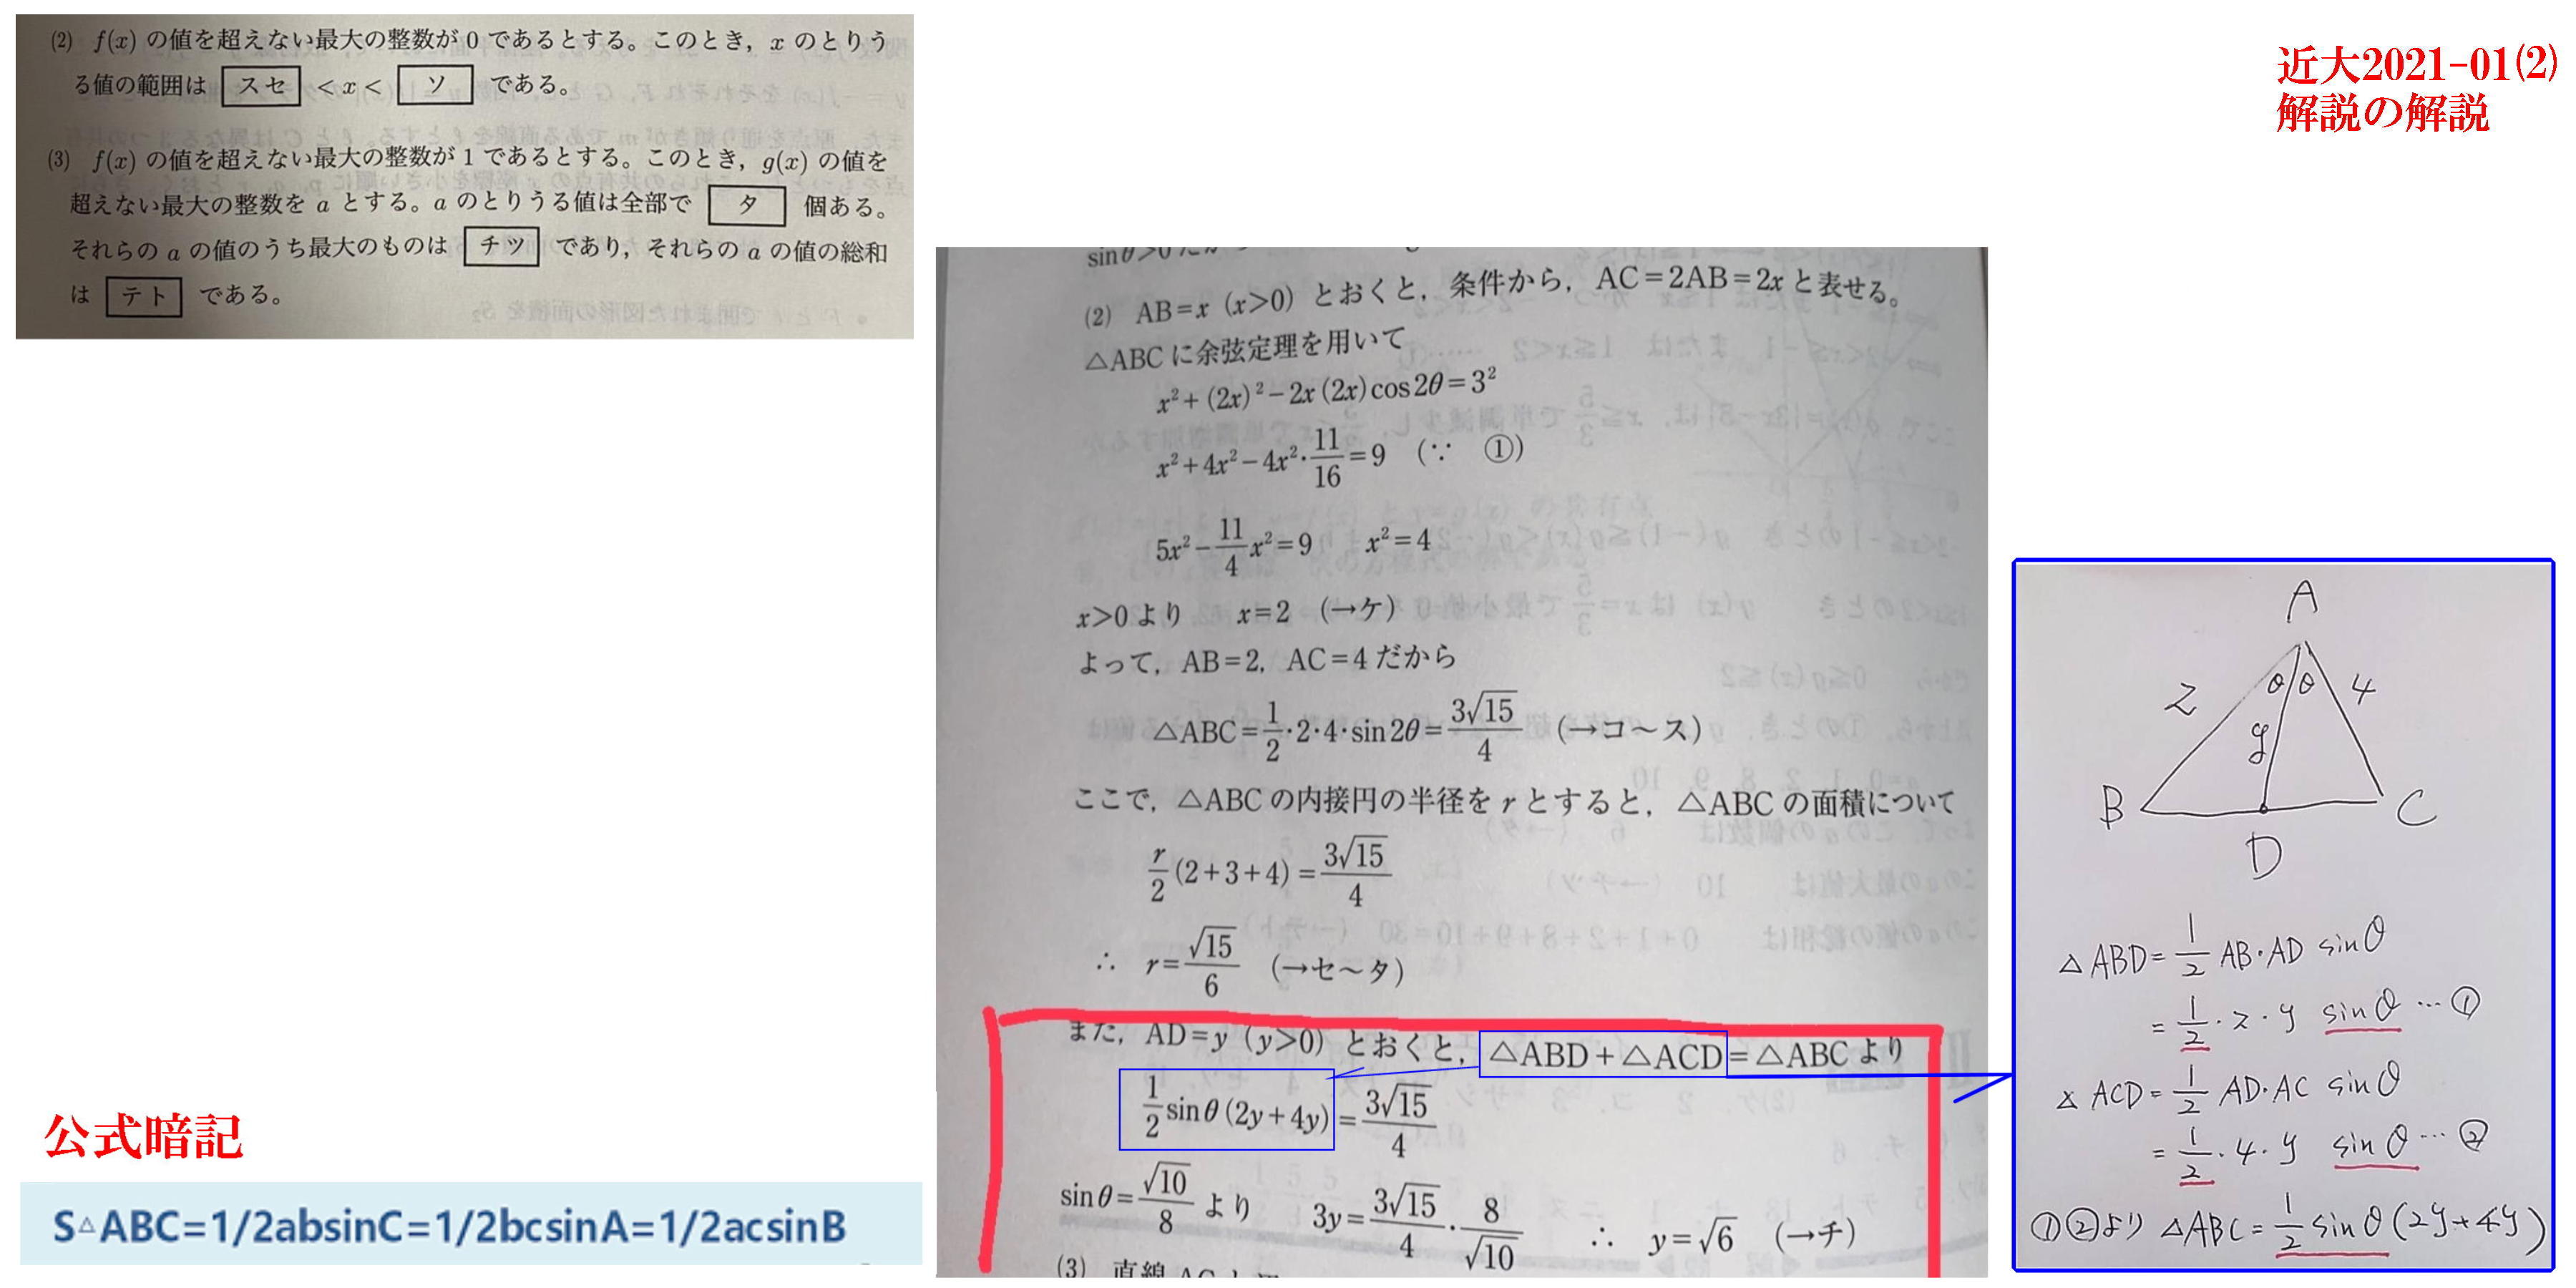 (2) f(x) の値を超えない最大の整数が 0 であるとする。このとき, x のとりう
る値の範囲は スセ < x < ソ である。
(3) f(x) の値を超えない最大の整数が 1 であるとする。このとき, g(x) の値を
超えない最大の整数を a とする。a のとりうる値は全部で タ 個ある。
それらの a の値のうち最大のものは チツ であり, それらの a の値の総和
は テト である。
近大2021-01(2)
解説の解説
(2) AB=x (x>0) とおくと, 条件から, AC=2AB=2x と表せる。
△ABC に余弦定理を用いて
x²+(2x)²−2x(2x)cos2θ=3²
x²+4x²−4x²・11/16=9 (∵ ①)
5x²−11/4x²=9 x²=4
x>0 より x=2 (→ケ)
よって, AB=2, AC=4 だから
△ABC=1/2・2・4・sin2θ=3√15/4 (→コ〜ス)
ここで, △ABC の内接円の半径を r とすると, △ABC の面積について
r/2(2+3+4)=3√15/4
∴ r=√15/6 (→セ〜タ)
また, AD=y (y>0) とおくと, △ABD+△ACD=△ABC より
1/2 sinθ(2y+4y)=3√15/4
sinθ=√10/8 より 3y=3√15/4・8/√10 ∴ y=√6 (→チ)
(3) 直線
公式暗記
S△ABC=1/2absinC=1/2bcsinA=1/2acsinB
A
2 θ θ 4
y
B C
D
△ABD=1/2 AB・AD sinθ
=1/2・2・y sinθ …①
△ACD=1/2 AD・AC sinθ
=1/2・4・y sinθ …②
①②より △ABC=1/2 sinθ(2y+4y)